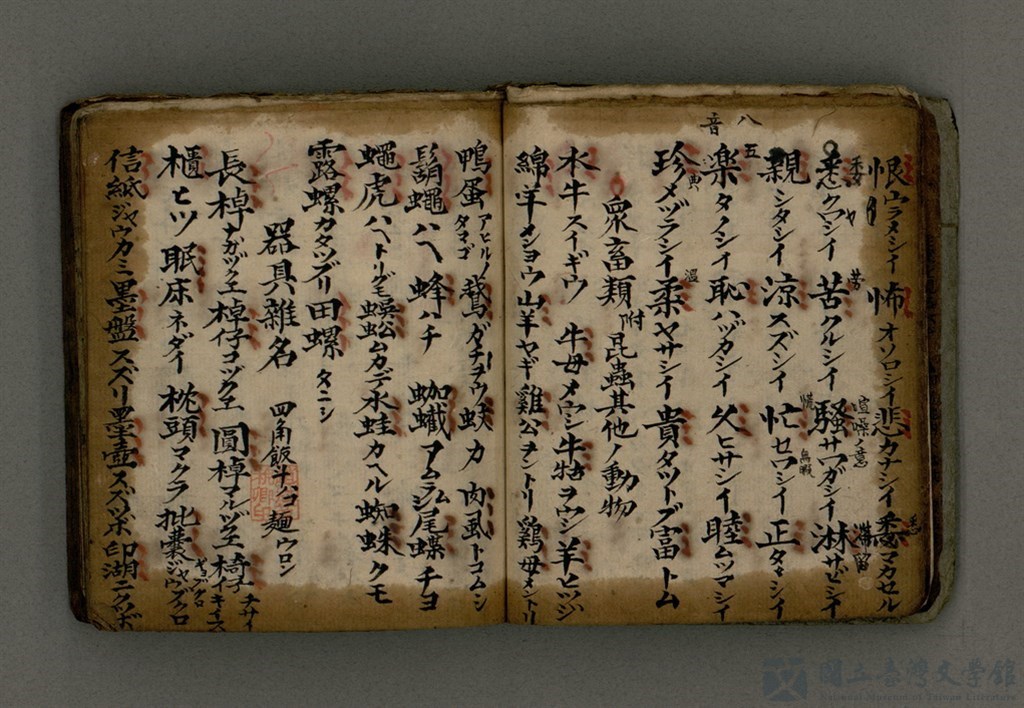 八音
恨ウラメシイ 怖オソロシイ 悲カナシイ 委マカセル
悉クワシイ 苦クルシイ 騷サワガシイ 淋サビシイ
喧噪ノ意 滯留
親シタシイ 涼スズシイ 忙セワシイ 正タダシイ
無暇
五
楽タノシイ 恥ハヅカシイ 久ヒサシイ 睦ムツマシイ
珍メヅラシイ 柔ヤサシイ 貴タツトブ 富トム
典 溫
衆畜類 附昆蟲其他ノ動物
水牛スイギウ 牛母メウシ 牛牯ヲウシ 羊ヒツジ
綿羊メンヨウ 山羊ヤギ 雞公ヲントリ 鷄母メントリ
鴨蛋アヒルノタマゴ 鵞ガチヨウ 蚊カ 肉虱トコムシ
鬍蠅ハヘ 蜂ハチ 蜘蠘ヲムラジ 尾蝶チヨ
蠅虎ハヘトリグモ 蜈蚣ムカデ 水蛙カヘル 蜘蛛クモ
露螺カタツブリ 田螺タニシ
器具雜名 四角飯斗ハコ 麵ウロン
長棹ナガヅクエ 棹仔コヅクエ 圓棹マルヅクエ 椅子イス
櫃ヒツ 眠床ネダイ 枕頭マクラ 批囊ジヤウブクロ
信紙ジヤウカミ 墨盤スズリ 墨壺スズツボ 印湖ニクツボ
國立臺灣文學館
National Museum of Taiwan Literature